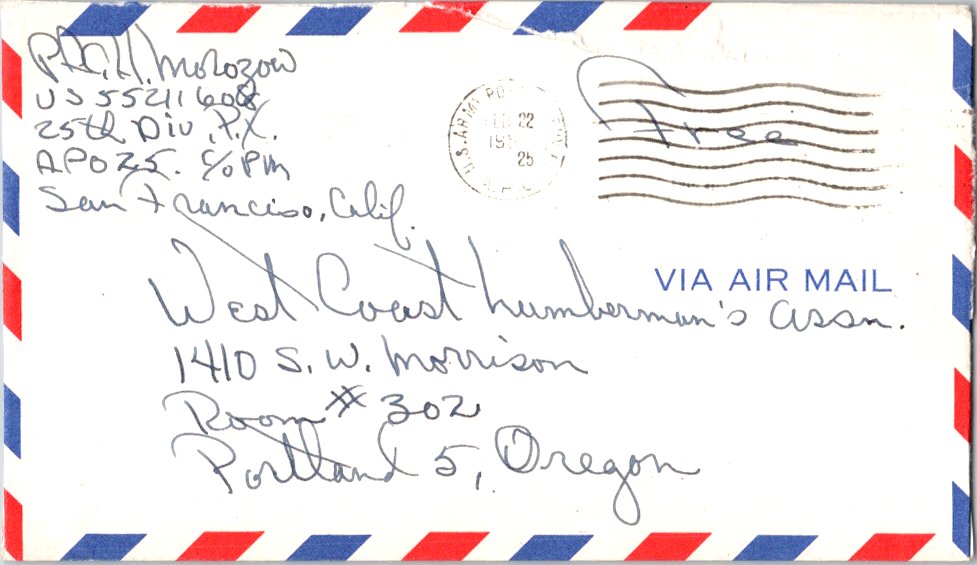 Pfc. H. Morozow
US 55211608
25th Div. P.X.
APO 25. c/o PM
San Franciso, Calif.
U.S. ARMY POSTAL
22
19
25
A.P.O.
Free
VIA AIR MAIL
West Coast Lumberman's Assn.
1410 S. W. Morrison
Room # 302
Portland 5, Oregon